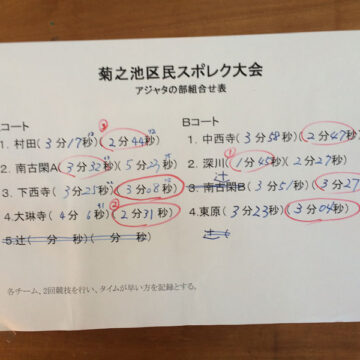 菊之池区民スポレク大会
アジャタの部組合せ表
コート
1. 村田(3分17秒)(2分44秒)
2. 南古閑A(3分32秒)(5分27秒)
3. 下西寺(3分25秒)(3分08秒)
4.大琳寺(4分6秒)(2分31秒)
5.辻(分秒)(分秒)
Bコート
1. 中西寺(3分58秒)(2分47秒)
2. 深川(1分45秒)(2分27秒)
辻
3. 南古閑B(3分51秒)(3分27
4.東原(3分23秒)(3分04秒)
各チーム、2回競技を行い、タイムが早い方を記録とする。